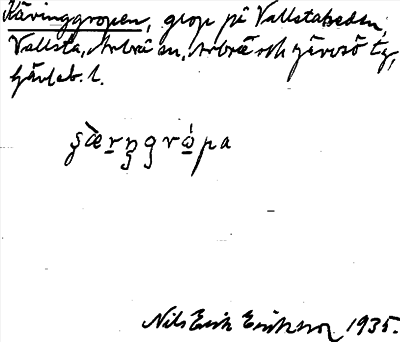 Käringgropen, grop på Vallstaheden,
Vallsta, Arbrå sn, Arbrå och Järvsö tg,
Gävleb. l.
Nils Erik Eriksson 1935.